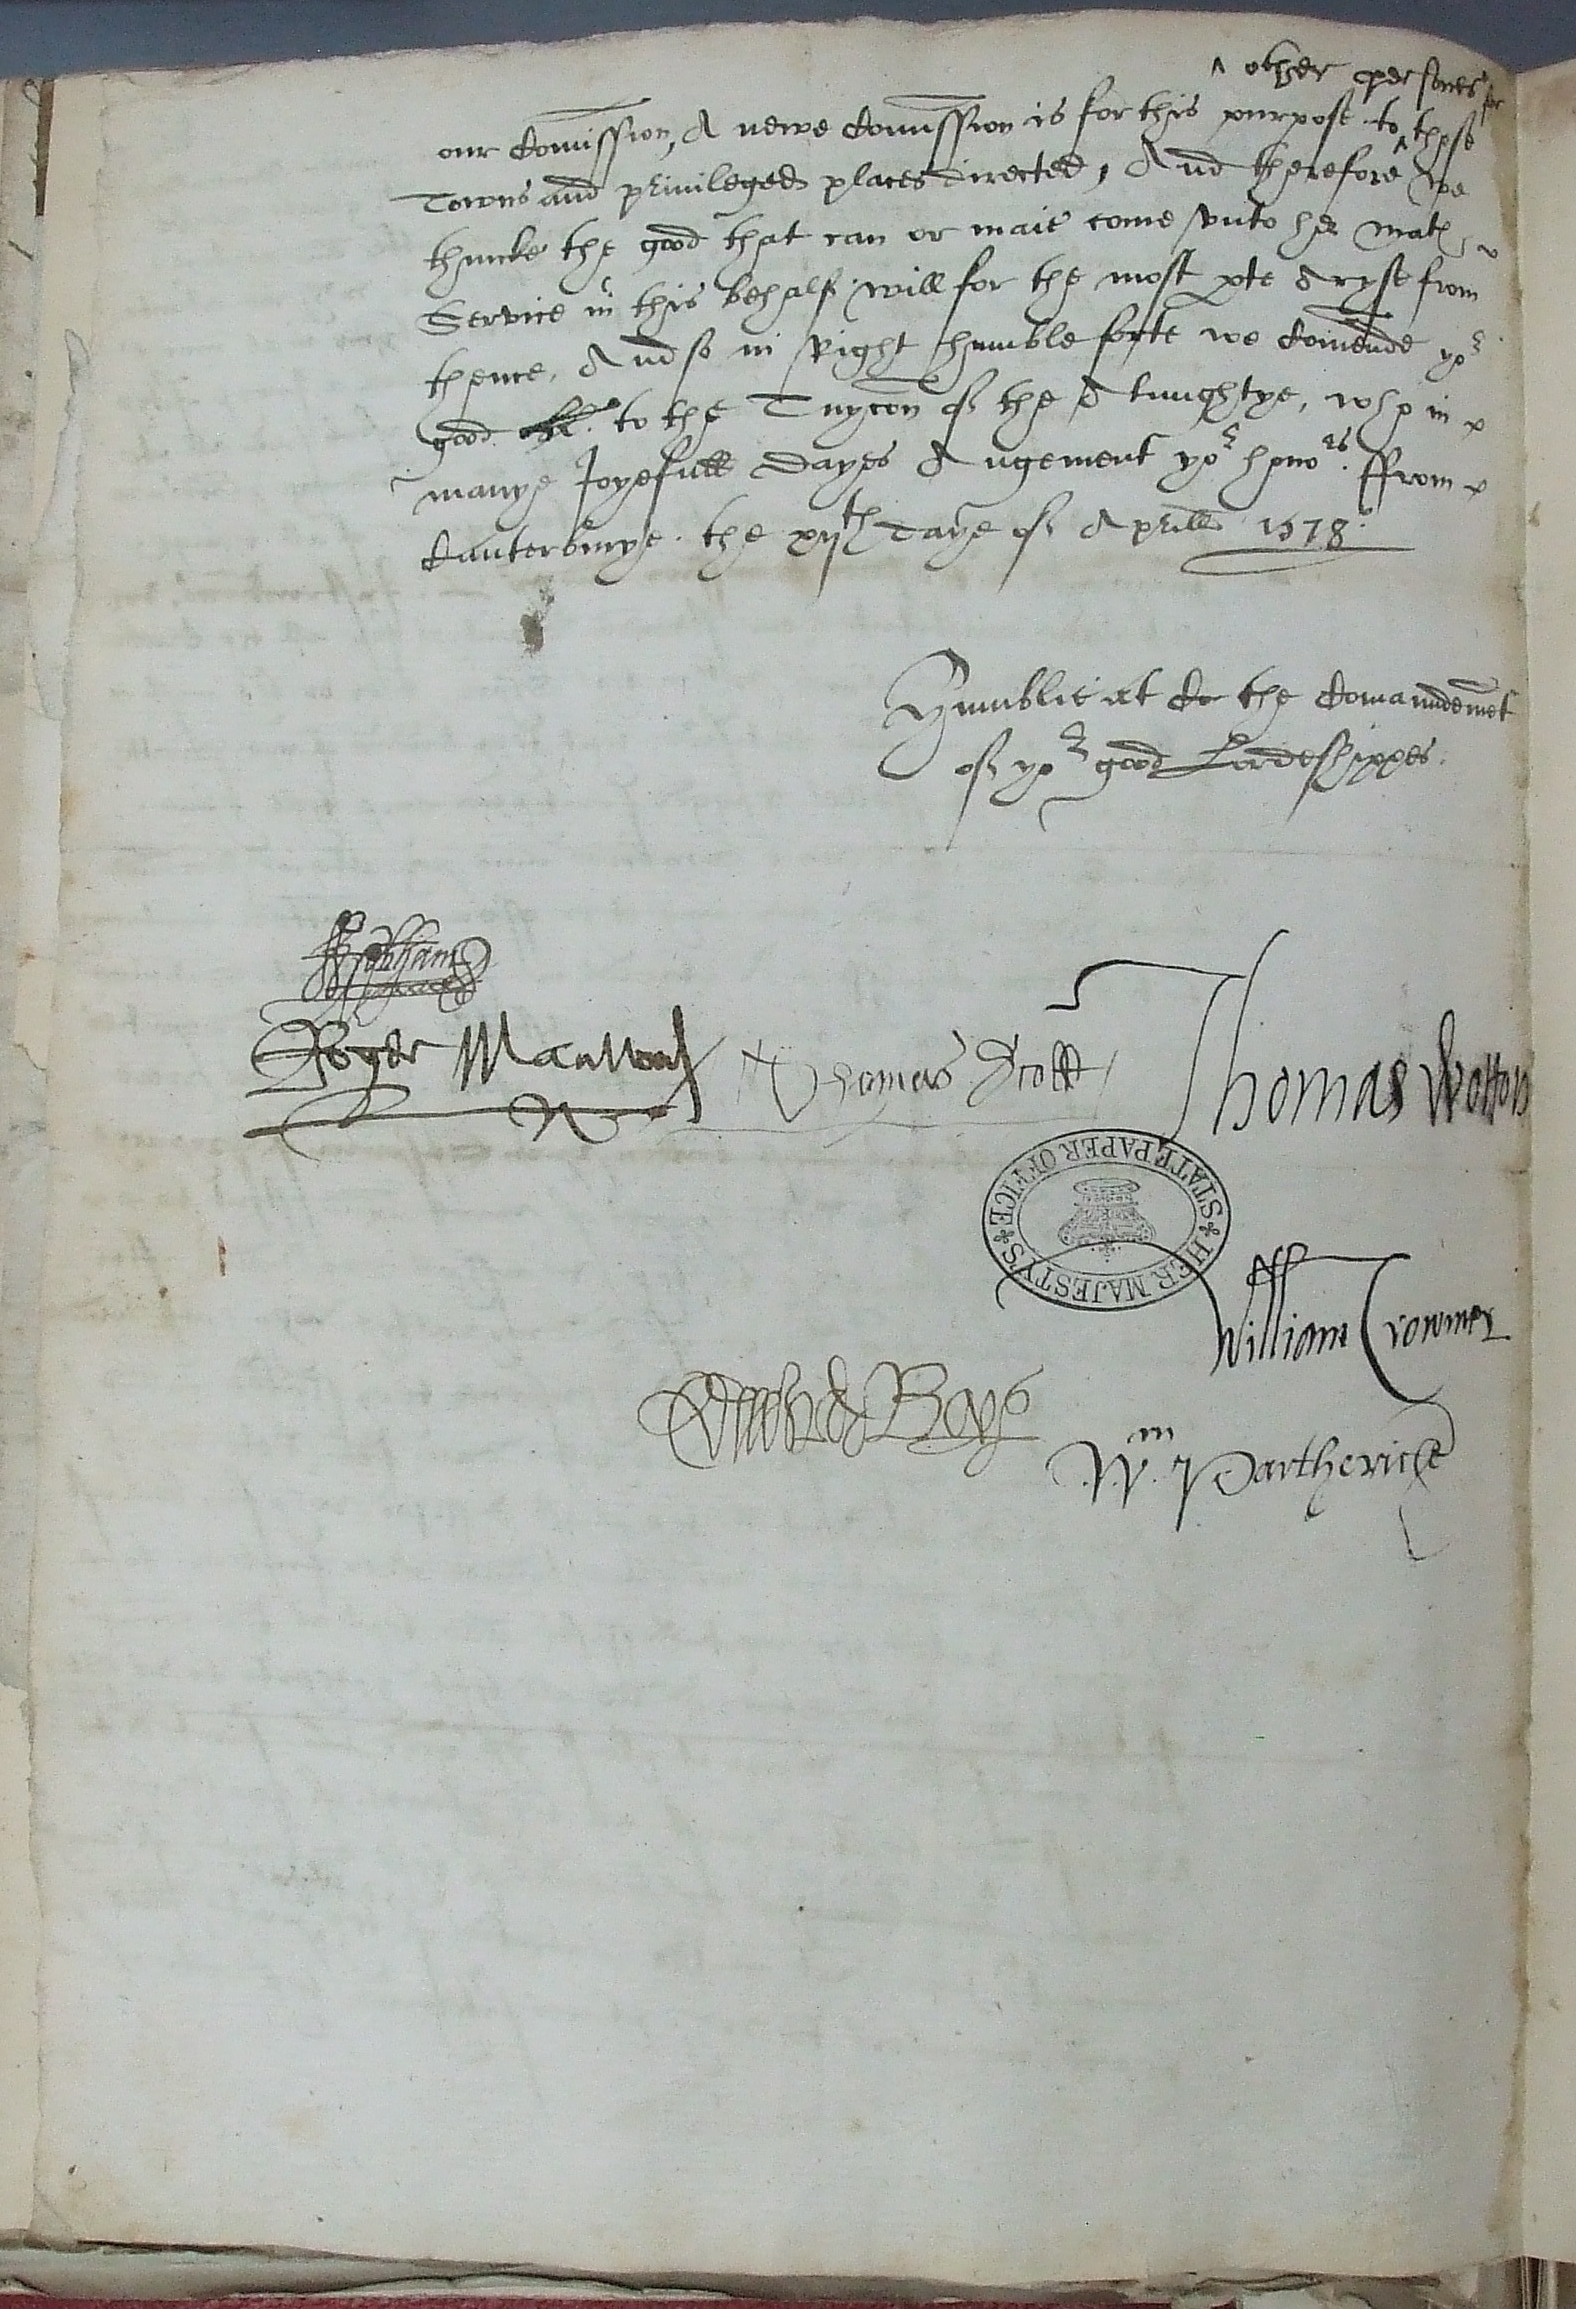 ^ other persones for
our Comission, A newe Comission is for this purpose to ^ those
Towns and priuileged places directed, And therefore we
thincke the good that can or maie come vnto her Mat
Service in this behalf will for the most pte Aryse from
thence, And so in Right humble sorte we Comende yor
good to the Tuycon of the Almightye, who in
manye Joyefull dayes Augement yor honors. ffrom
Canterburye. the xijth daye of Aprill 1578.
Humblie at the Comaundemet
of yor good Lordeshippes.
W Cobham
Roger Manwood Thomas Scott Thomas Wotton
HER MAJESTY'S STATE PAPER OFFICE
William Crowmer
Edward Boys
Wm Partheriche